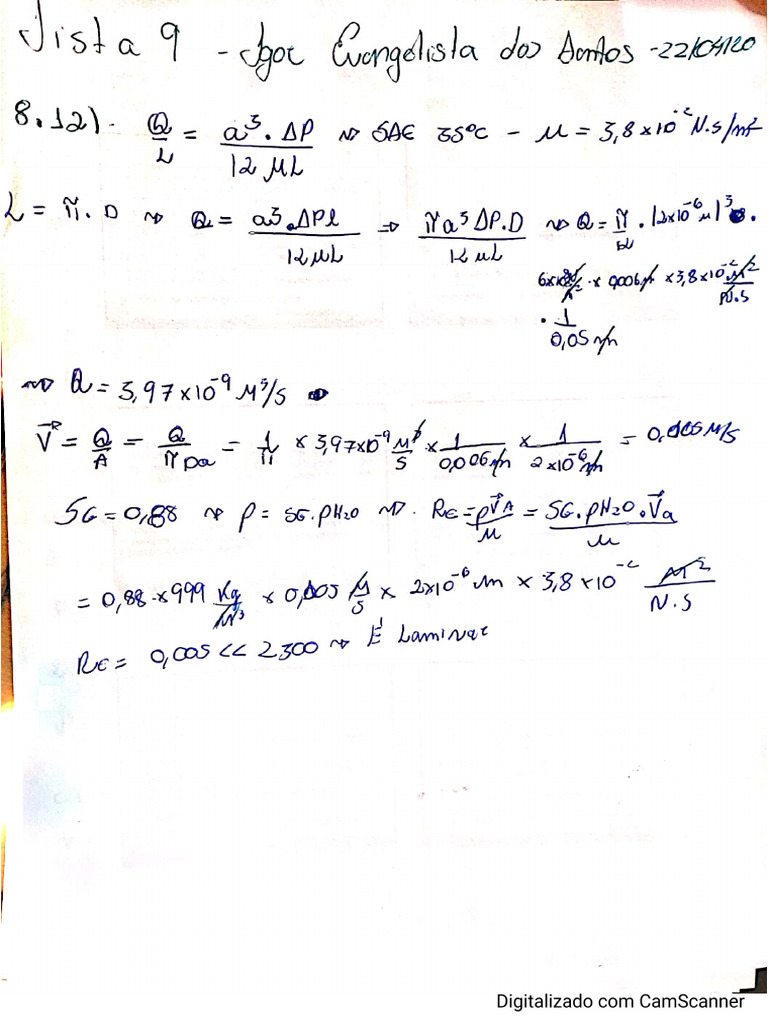 Lista 9 - Igor Evangelista dos Santos - 22/04/20
8.12) - Q/L = a³.ΔP / 12 μL ⇒ SAE 35°C - μ = 3,8×10⁻² N.S/m²
L = π.D ⇒ Q = a³.ΔPl / 12μL ⇒ πa³ΔP.D / 12μL ⇒ Q = π/12 . (2×10⁻⁶ m)³ .
× 0,006 m × 3,8×10⁻² m² / N.S
. 1 / 0,05 m
⇒ Q = 3,97×10⁻⁹ m³/s
V⃗ = Q/A = Q/πDa = 1/π × 3,97×10⁻⁹ m³/s × 1/0,006m × 1/2×10⁻⁶m = 0,105 m/s
SG = 0,88 ⇒ ρ = SG.ρH2O ⇒ Re = ρV⃗A/μ = SG.ρH2O.V⃗a / μ
= 0,88 × 999 Kg/m³ × 0,105 m/s × 2×10⁻⁶ m × 3,8×10⁻² m² / N.S
Re = 0,005 << 2300 ⇒ É Laminar
Digitalizado com CamScanner